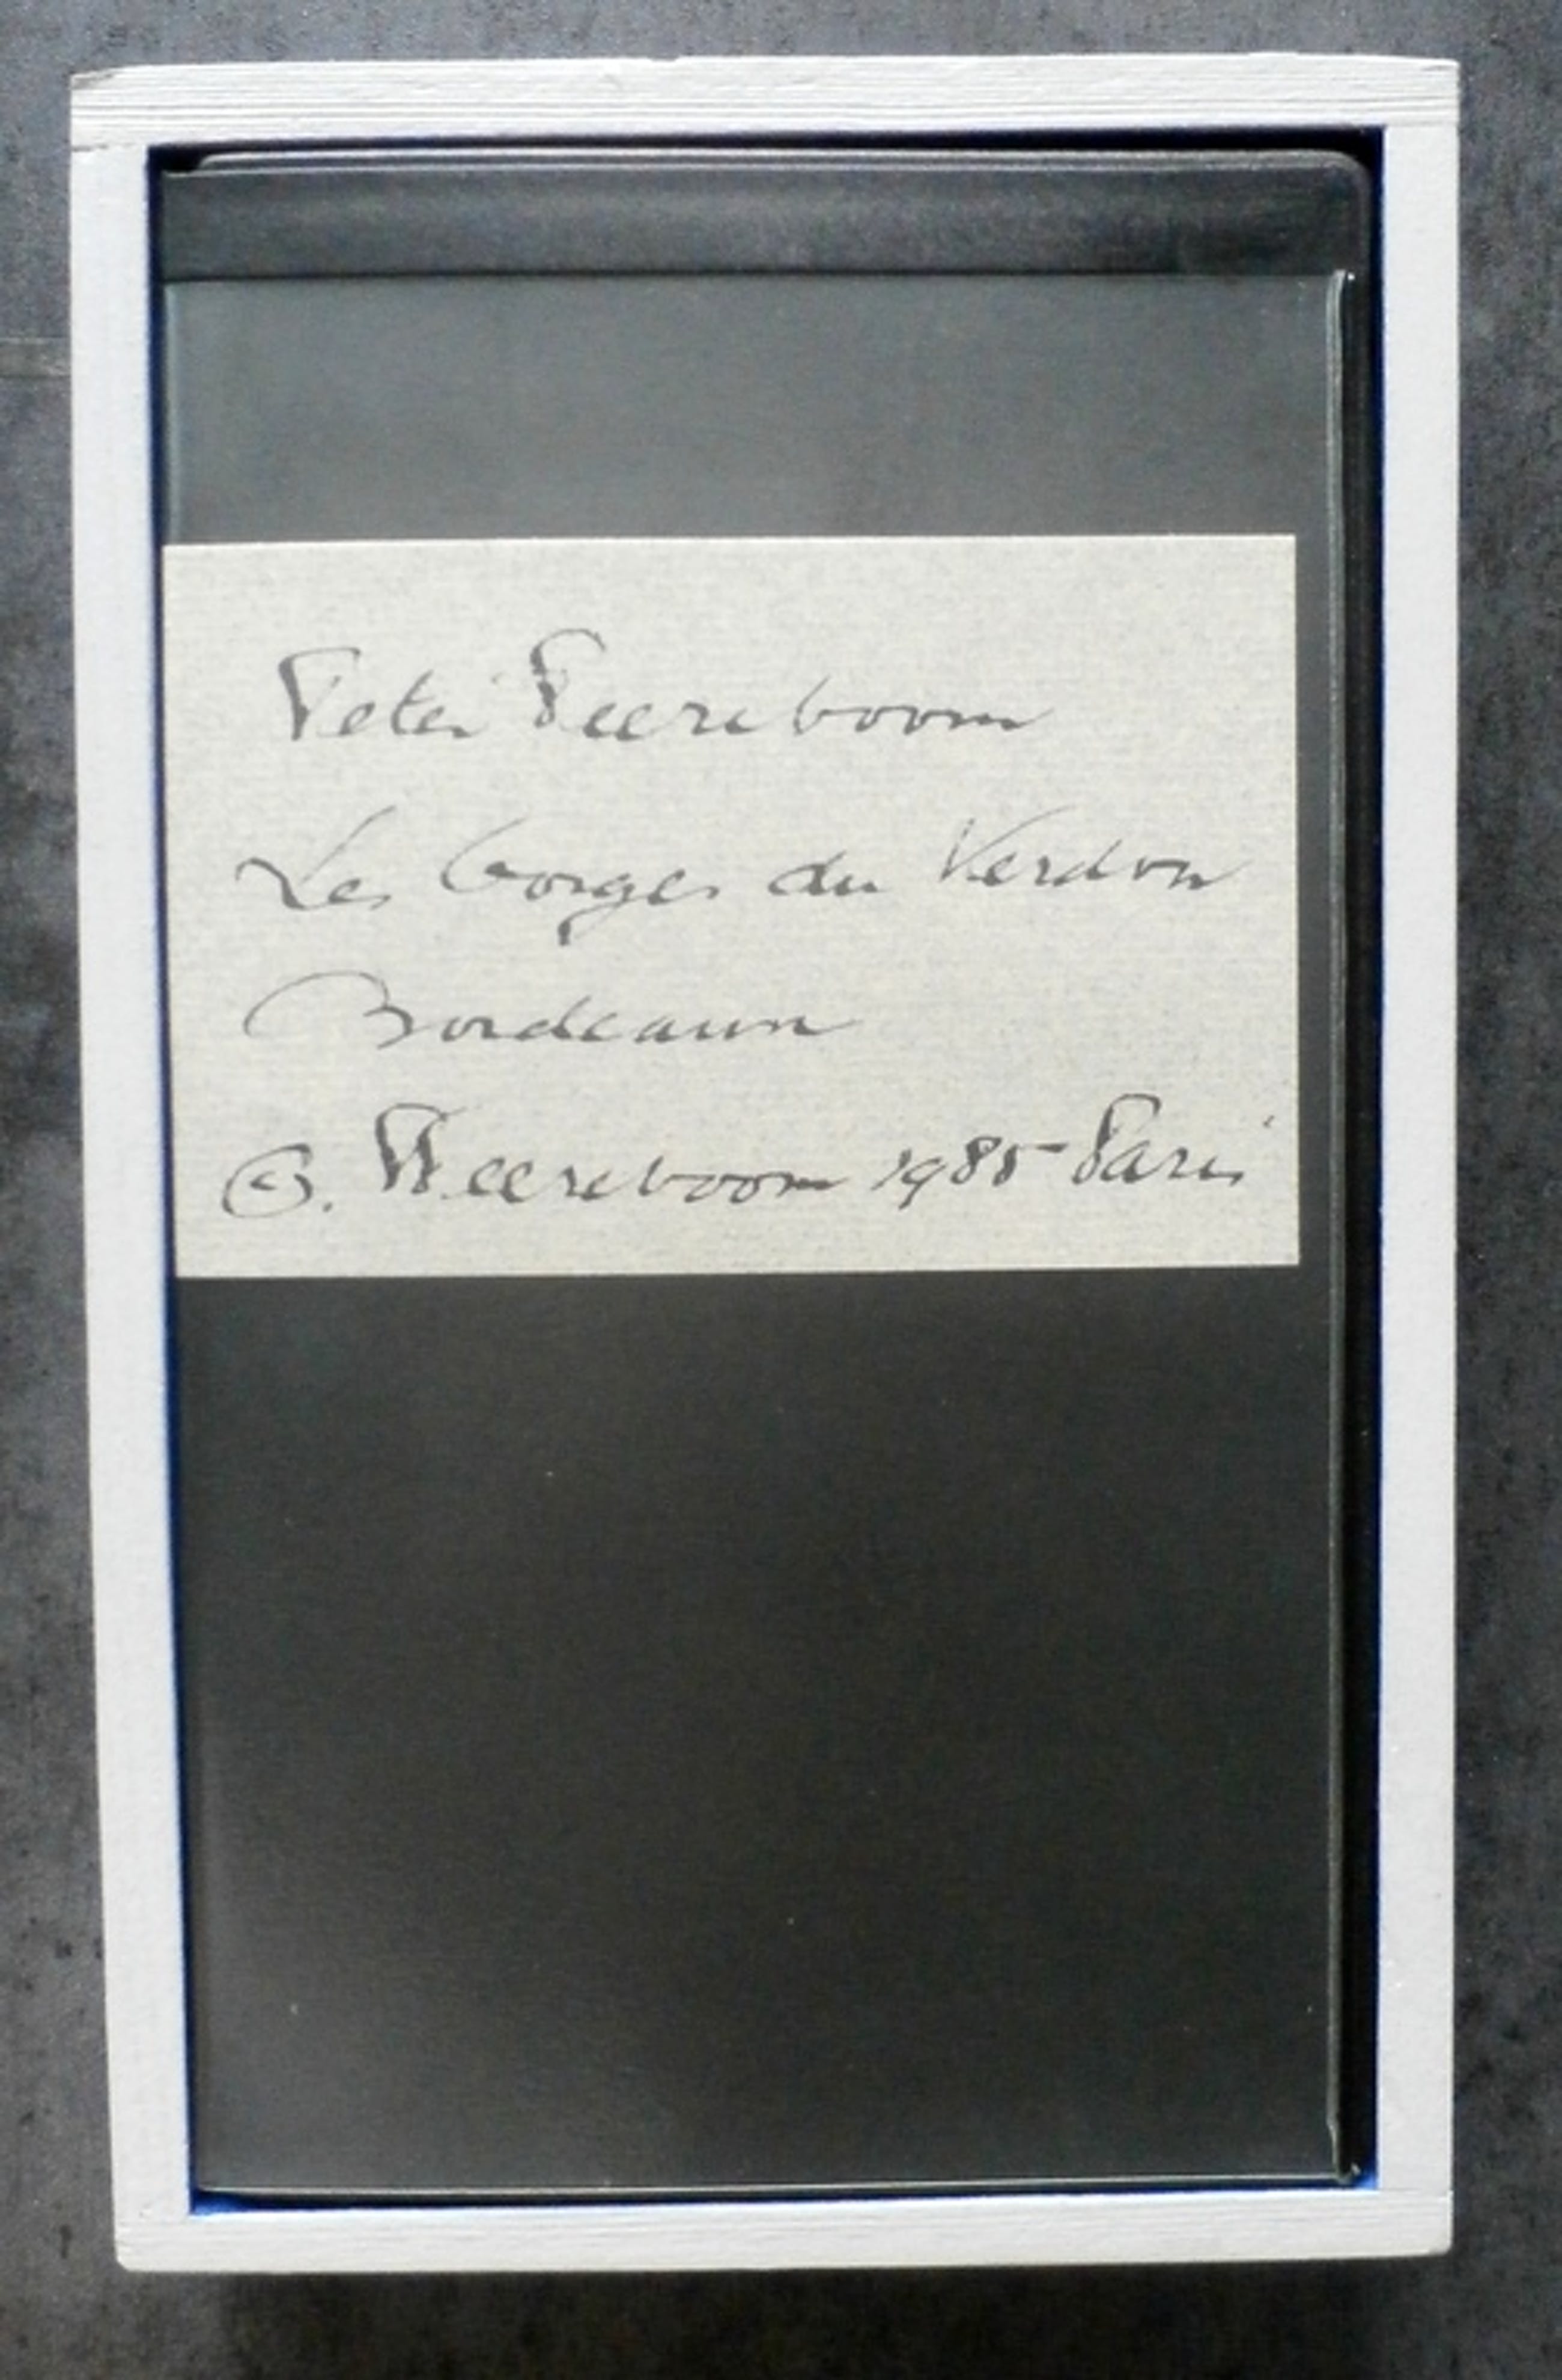 Peter Peereboom
Les Gorges du Verdon
Bordeaux
©. Peereboom 1985 Paris